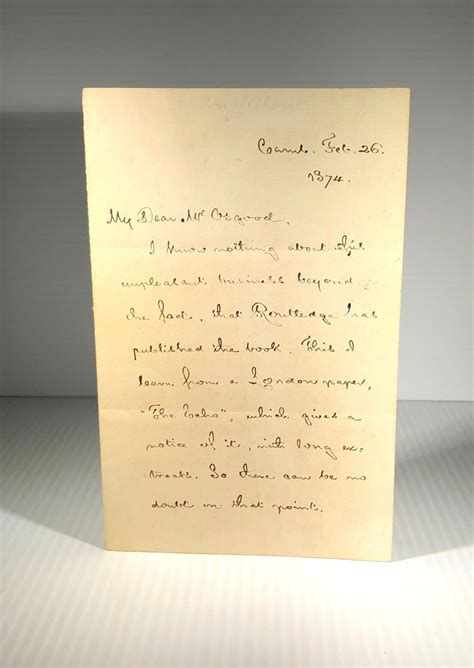 Camb. Feb. 26.
1874.
My Dear Mr Osgood,
I know nothing about this
unpleasant business beyond
the fact, that Routledge has
published the book. This I
learn from a London paper,
"The Echo", which gives a
notice of it, with long ex-
tracts. So there can be no
doubt on that point.